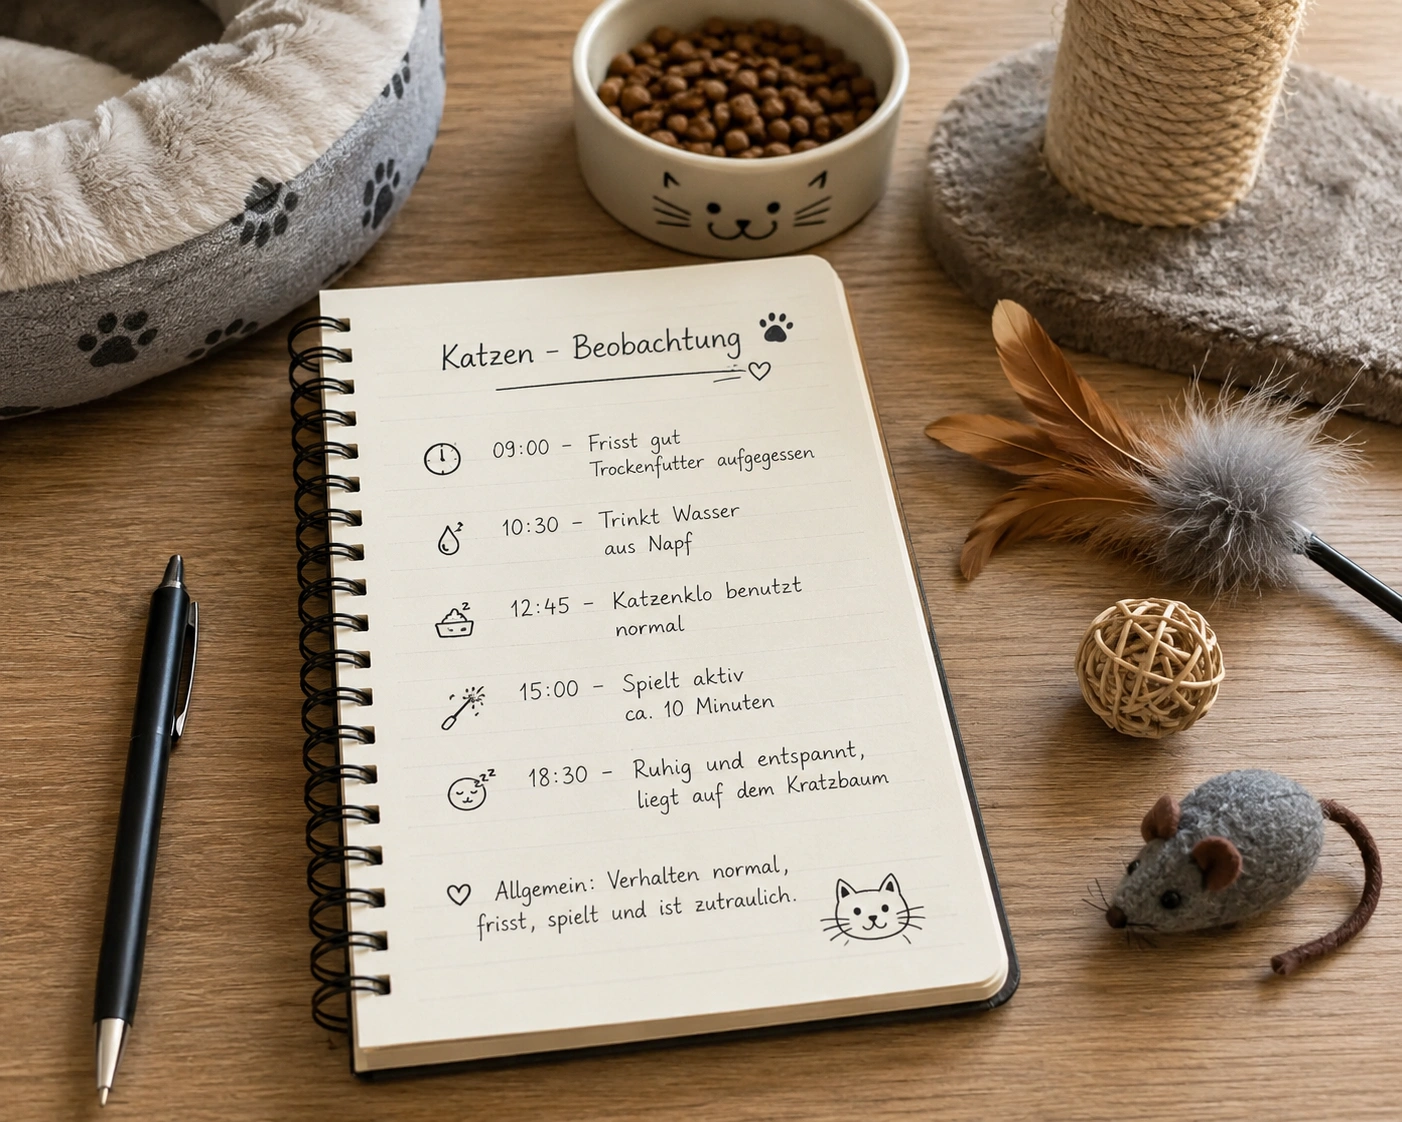 Katzen – Beobachtung
09:00 – Frisst gut
Trockenfutter aufgegessen
10:30 – Trinkt Wasser
aus Napf
12:45 – Katzenklo benutzt
normal
15:00 – Spielt aktiv
ca. 10 Minuten
18:30 – Ruhig und entspannt,
liegt auf dem Kratzbaum
Allgemein: Verhalten normal,
frisst, spielt und ist zutraulich.